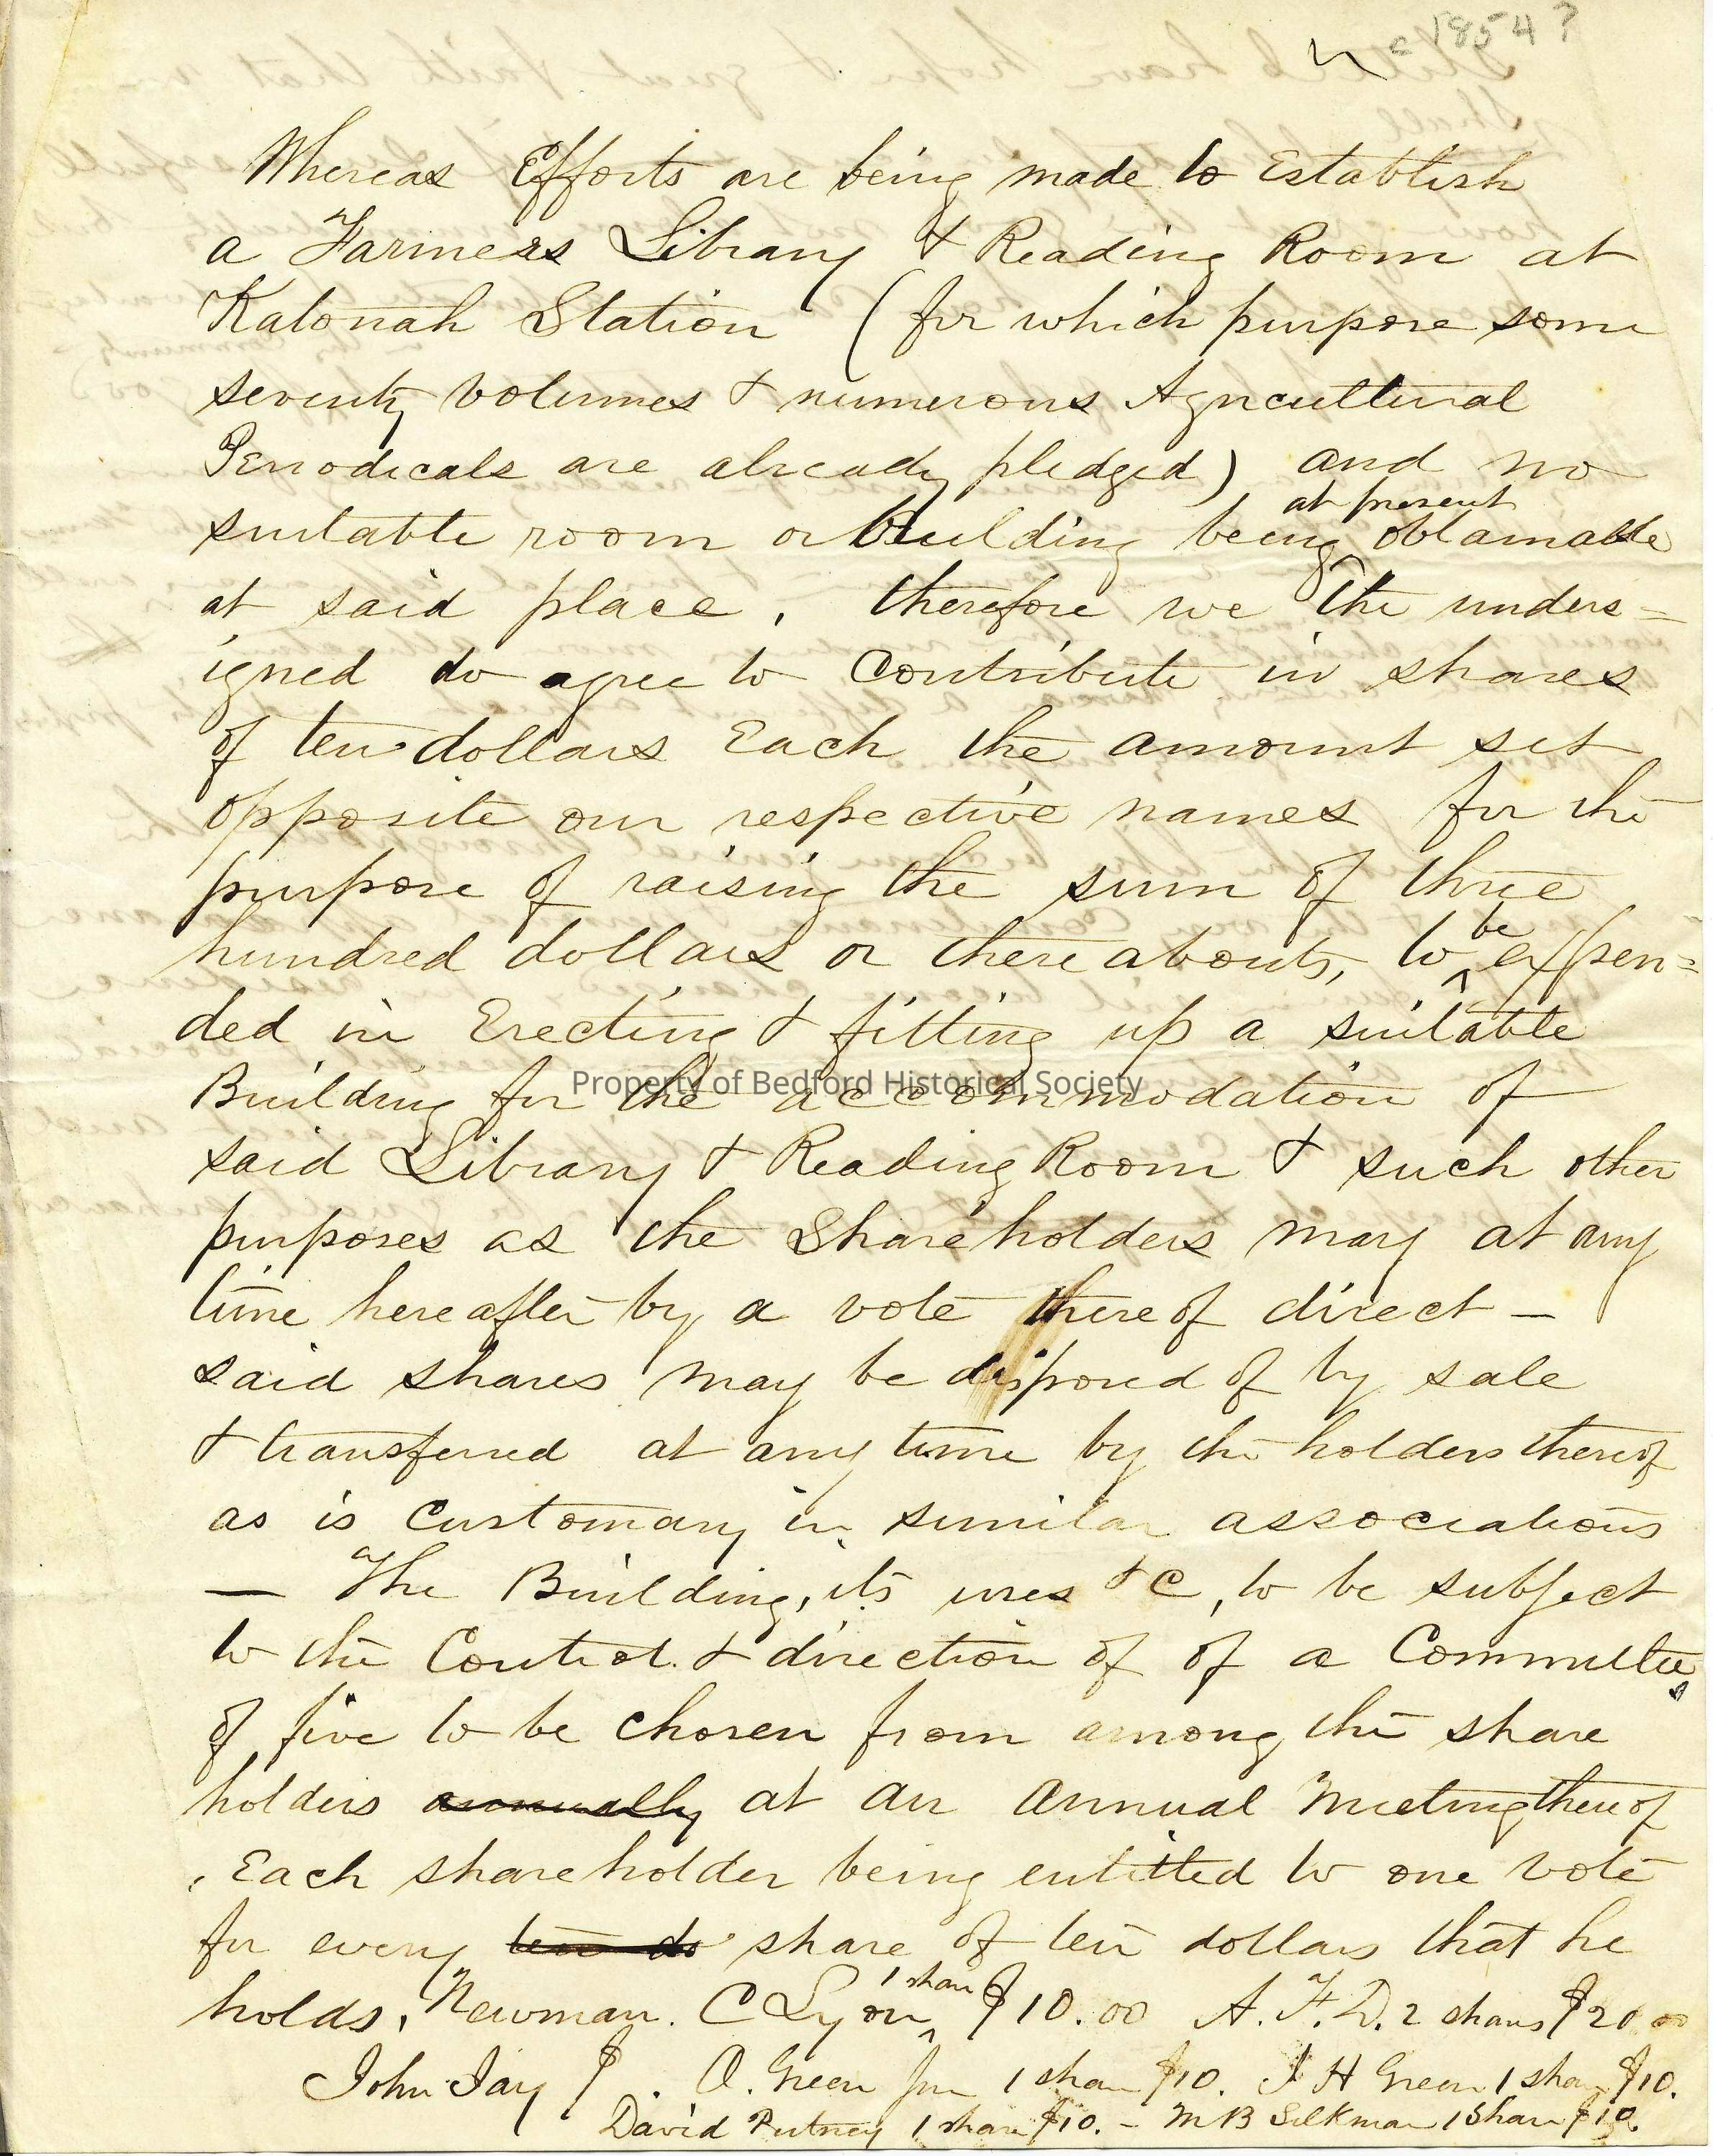 c 1854?
Whereas Efforts are being made to Establish
a Farmers Library & Reading Room at
Katonah Station (for which purpose some
seventy volumes & numerous Agricultural
Periodicals are already pledged) and no
at present
suitable room or Building being obtainable
at said place, therefore we the unders=
igned do agree to Contribute in shares
of ten dollars Each the amount set
opposite our respective names for the
purpose of raising the sum of three
be
hundred dollars or there abouts, to ^ expen=
ded in Erecting & fitting up a suitable
Property of Bedford Historical Society
Building for the accommodation of
said Library & Reading Room & such other
purposes as the Shareholders may at any
time hereafter by a vote thereof direct —
said shares may be disposed of by sale
& transferred at any time by the holders thereof
as is Customary in similar associations
— The Building, its uses &C, to be subject
to the Control & direction of of a Committee
of five to be chosen from among the share
holders annually at an Annual Meeting thereof
, Each shareholder being entitled to one vote
for every ten do share of ten dollars that he
1 share
holds, Newman. C Lyon ^ $10.00 A. F. D. 2 shares $20.00
John Jay $ . A. Green Jun 1 share $10. J H Green 1 share $10.
David Putney 1 share $10. – M B Silkman 1 Share $10.